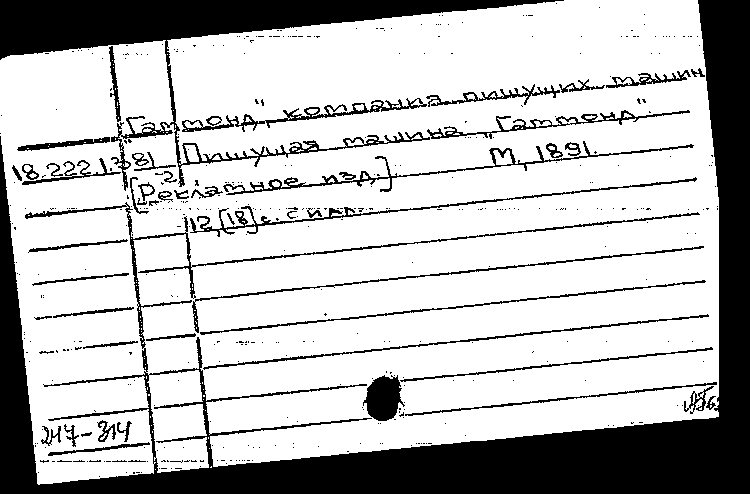 „Гаммонд", компания пишущих машин
Пишущая машина „Гаммонд".
18.222.1.381
-2
[Рекламное изд.] М, 1891.
12,[18] с. с илл.
247-314